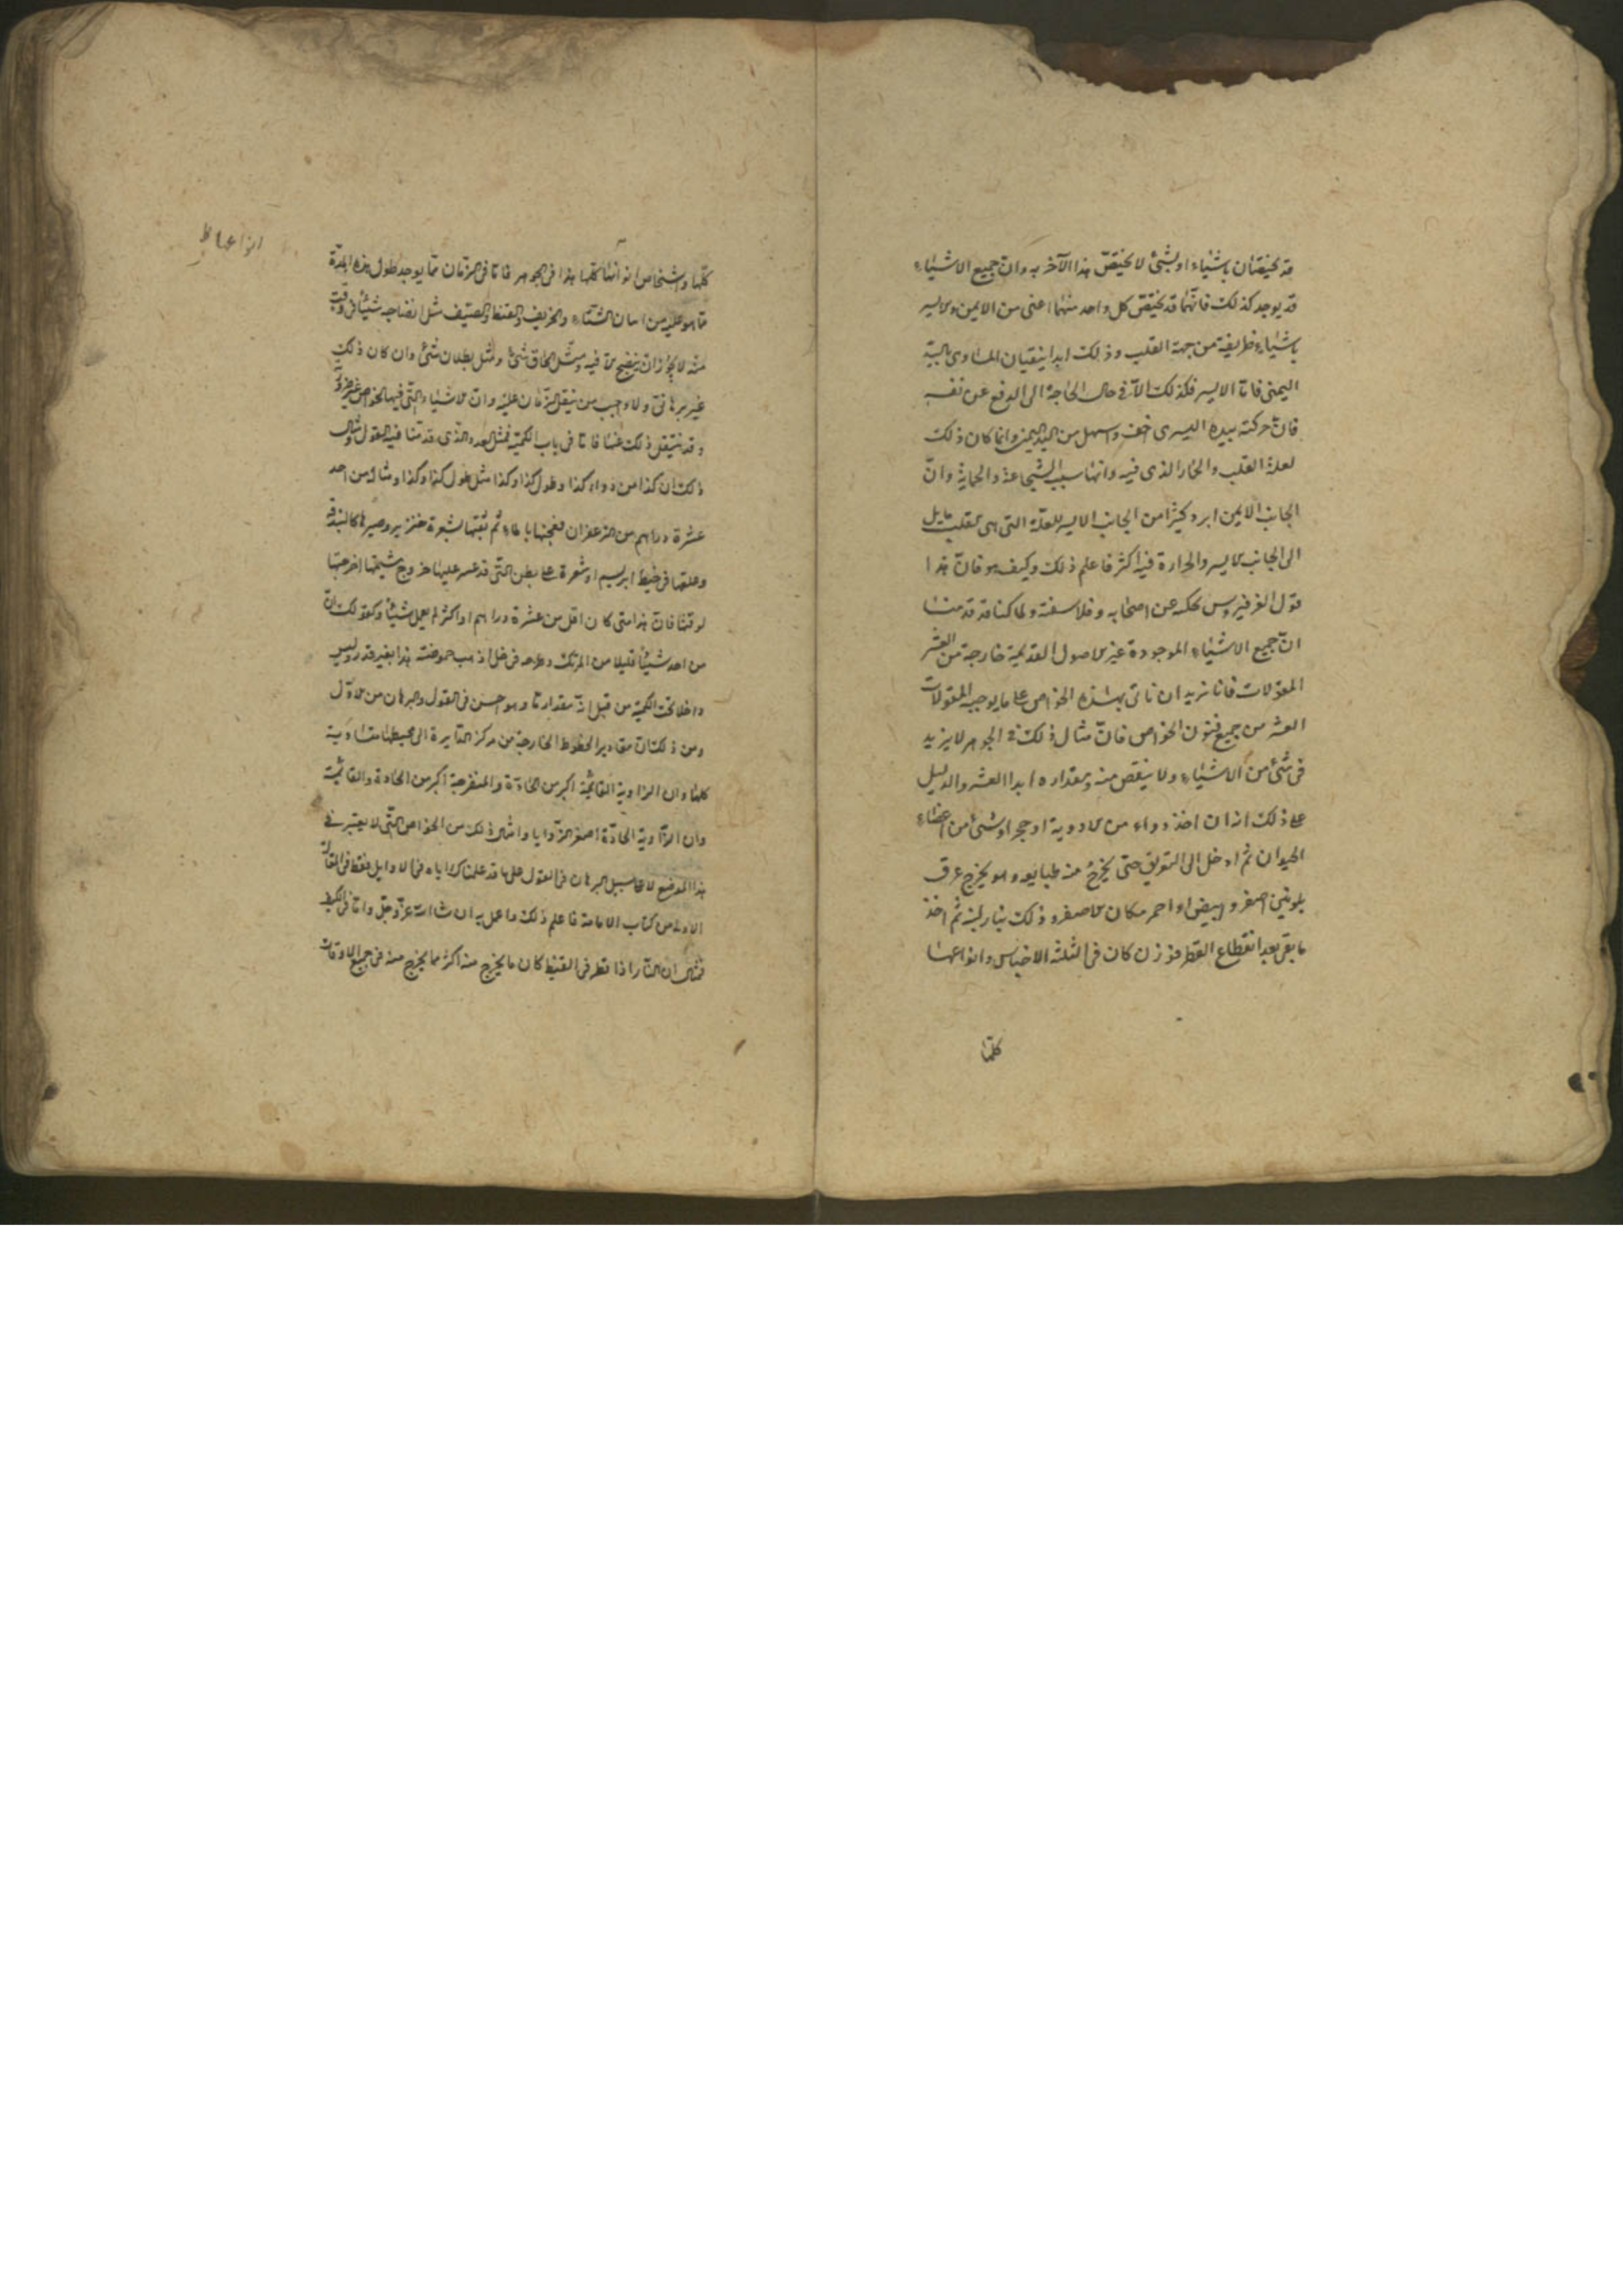 قد يختصان باشياء او بشئ لا يختص هذا الآخر به وان جميع الاشياء
قد يوجد كذلك فانهما قد يختص كل واحد منهما اعنى من الايمن والايسر
باشياء طريفة من جهة القلب وذلك ابدا يتقيان المساوى باليد
اليمنى فاما الايسر فكذلك الا فى حال الحاجة الى الدفع عن نفسه
فان حركته بيده اليسرى اخف واسهل من اليد اليمنى وانما كان ذلك
لعلة القلب والحار الذى فيه وانها سبب الشجاعة والحماية وان
الجانب الايمن ابرد كثيرا من الجانب الايسر للعلة التى هى القلب مايل
الى الجانب الايسر والحرارة فيه اكثر فاعلم ذلك وكيف هو فان هذا
قول الفرفيروس يحكيه عن اصحابه وفلاسفته ولما كنا قد قدمنا
ان جميع الاشياء الموجودة غير الاصول القديمة خارجة من العشر
المقولات فانا نريد ان ناتى بهذه الخواص على ما يوجبه المقولات
العشر من جميع فنون الخواص فان مثال ذلك فى الجوهر لا يزيد
فى شئ من الاشياء ولا ينقص منه ومقداره ابدا العشر والدليل
على ذلك انه ان اخذ دواء من الادوية او حجر او شئ من اعضاء
الحيوان ثم ادخل الى التعريق حتى يخرج منه طبايعه وهو يخرج عرق
بلونين اصفر وابيض او احمر مكان الاصفر وذلك بنار لينة ثم اخذ
ما بقى بعد انقطاع القطر فوزن كان فى الثلثة الاجناس وانواعها
كلها
كلها واشخاص انواعها كلها هذا فى الجوهر فاما فى الزمان مما يوجد طول هذه المدة
ما هو عليه من ازمان الشتاء والخريف والقيظ والصيف مثل انضاجه شيئا فى وقت
منه لا يجوز ان ينضج الا فيه ومثل الحاق شئ ومثل بطلان شئ وان كان ذلك
غير برهانى ولا واجب من تنقل الزمان عليه وان الاشياء التى فيها الخواص
وقد ينتقل ذلك عنها فاما فى باب الكمية فمثل العدد الذى قدمنا فيه القول ومثال
ذلك ان كذا من دواء كذا وطول كذا وكذا مثل طول كذا وكذا ومثال من اخذ
عشرة دراهم من الزعفران فعجنها بالماء ثم ثقبها بشعرة خنزير وصيرها كالبندقة
وعلقها فى خيط ابريسم او شعرة على بطن التى قد عسر عليها خروج مشيمتها اخرجتها
لوقتها فان هذا متى كان اقل من عشرة دراهم او اكثر لم يعمل شيئا وكقولك ان
من اخذ شيئا قليلا من المرتك وطرحه فى خل اذهب حموضته هذا بغير قدر وليس
داخلا تحت الكمية من قبل انه مقدار ما وهو احسن فى القول والبرهان من الاول
ومن ذلك ان مقادير الخطوط الخارجة من مركز الدايرة الى محيطها متساوية
كلها وان الزاوية القائمة اكبر من الحادة والمنفرجة اكبر من الحادة والقائمة
وان الزاوية الحادة اصغر الزوايا وامثال ذلك من الخواص التى لا يعتبر فى
هذا الموضع لا على سبيل البرهان فى القول عليها قد علمناك اياه فى الاوايل فقط فى المقالة
الاولى من كتاب الامامة فاعلم ذلك واعمل به ان شاء الله عز وجل واما فى الكيف
فمثال ان النار اذا قطر فى القيظ كان ما يخرج منه اكثر مما يخرج منه فى جميع الاوقات
انواعها